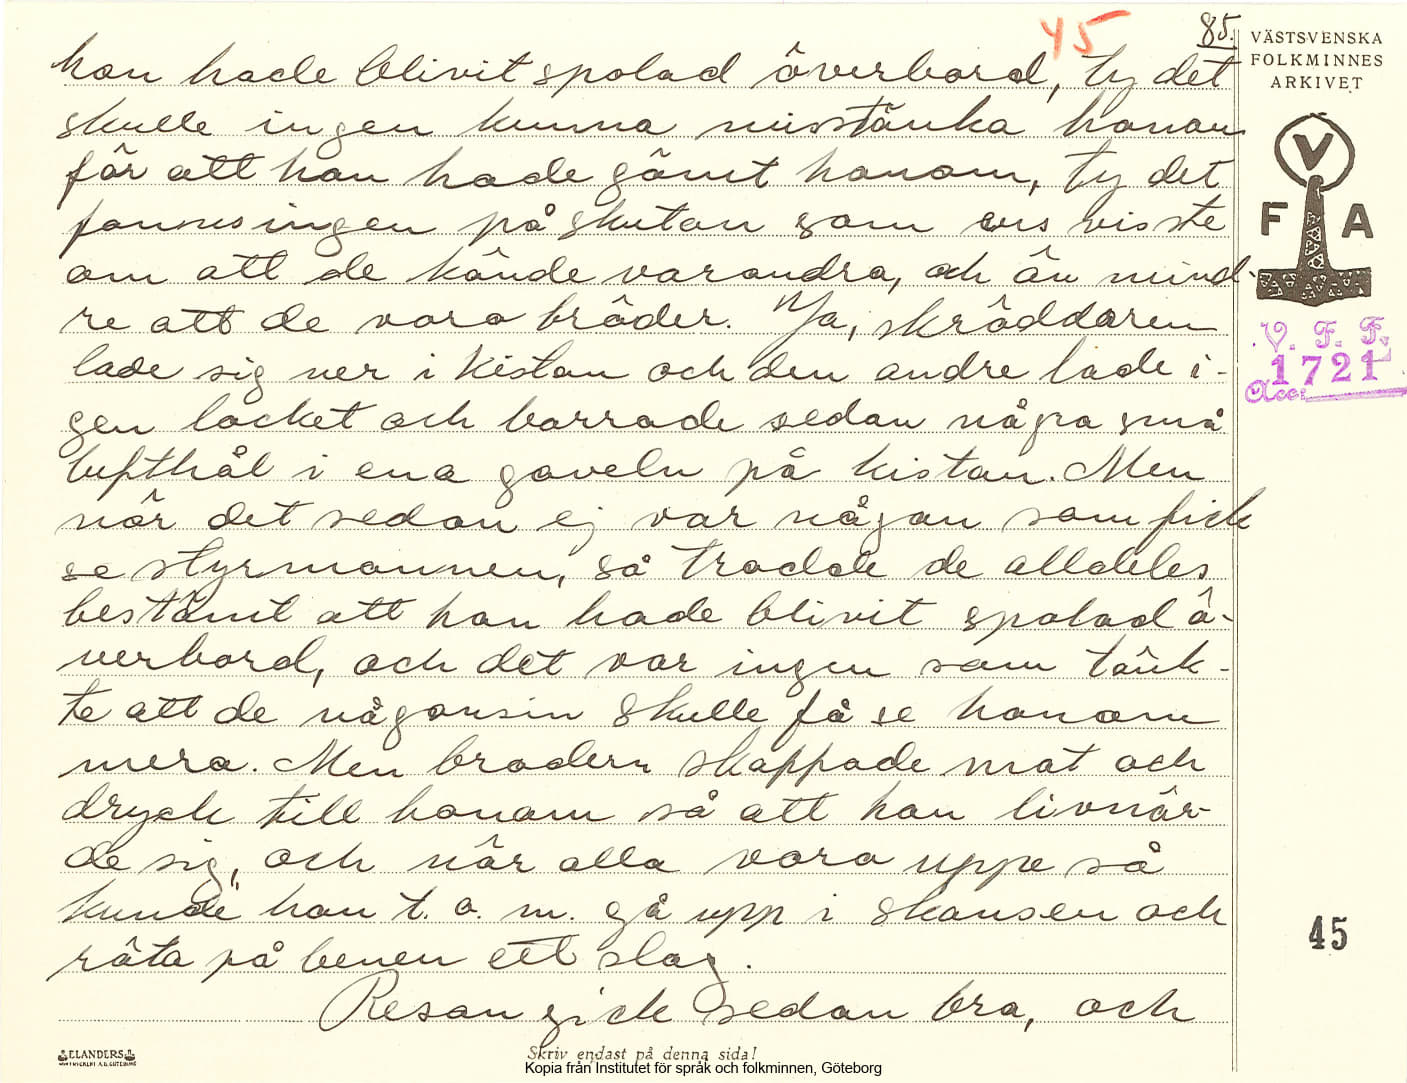 45
85.
VÄSTSVENSKA
FOLKMINNES
ARKIVET
V
F A
V. F. F.
1721
Acc:
han hade blivit spolad överbord, ty det
skulle ingen kunna misstänka honom
för att han hade gömt honom, ty det
fanns ingen på skutan som ens visste
om att de kände varandra, och än mind-
re att de voro bröder. "Ja, skräddaren
lade sig ner i kistan och den andre lade i-
gen locket och borrade sedan några små
lufthål i ena gaveln på kistan. Men
når det sedan ej var någon som fick
se styrmannen, så trodde de alldeles
bestämt att han hade blivit spolad ö-
verbord, och det var ingen som tänk-
te att de någonsin skulle få se honom
mera. Men brodern skappade mat och
dryck till honom så att han livnär-
de sig, och når alla voro uppe så
kunde han t. o. m. gå upp i skansen och
räta på benen ett slag.
Resan gick sedan bra, och
45
ELANDERS
Skriv endast på denna sida!
Kopia från Institutet för språk och folkminnen, Göteborg